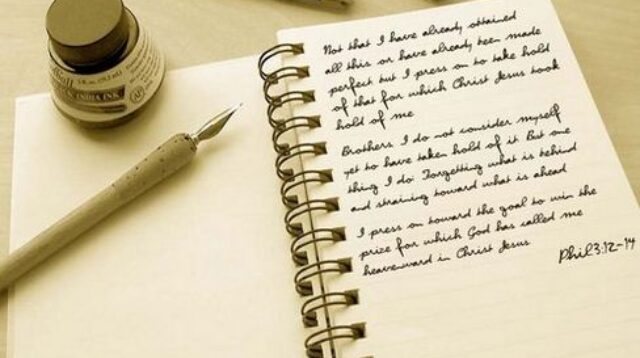 INDIA INK
Not that I have already obtained
all this or have already been made
perfect but I press on to take hold
of that for which Christ Jesus took
hold of me
Brothers I do not consider myself
yet to have taken hold of it But one
thing I do: Forgetting what is behind
and straining toward what is ahead
I press on toward the goal to win the
prize for which God has called me
heavenward in Christ Jesus
Phil 3:12-14